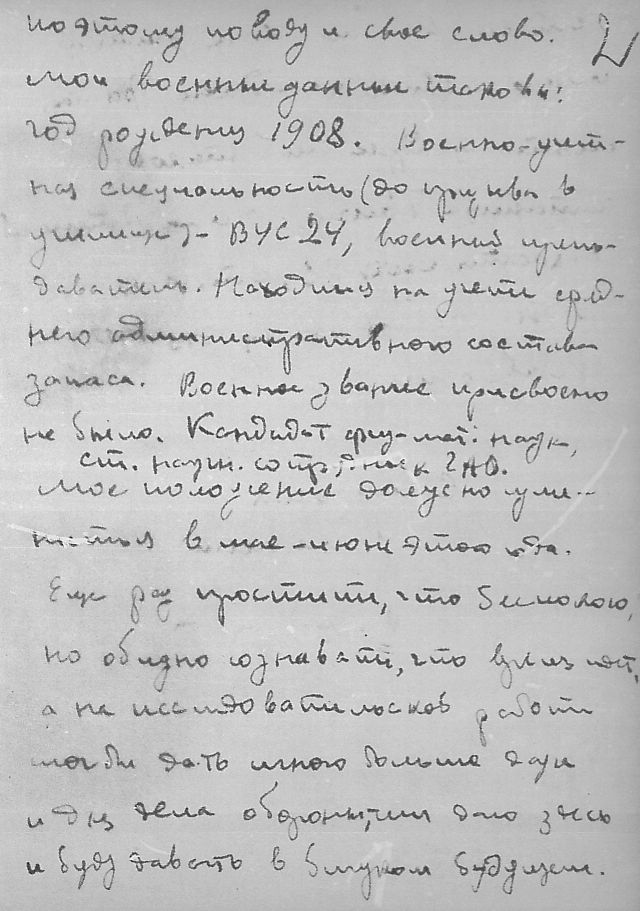 по этому поводу и свое слово.
Мои военные данные таковы:
год рождения 1908. Военно-учет-
ная специальность (до призыва в
училище) - ВУС 24, военный препо-
даватель. Находился на учете сред-
него административного состава
запаса. Военное звание присвоено
не было. Кандидат физ-мат. наук,
ст. научн. сотрудник ГАО.
Мое положение должно изме-
ниться в мае-июне этого года.
Еще раз простите, что беспокою,
но обидно сознавать, что
а на исследовательской работе
мог бы дать много больше даже
и для дела обороны, чем даю здесь
и буду давать в близком будущем.